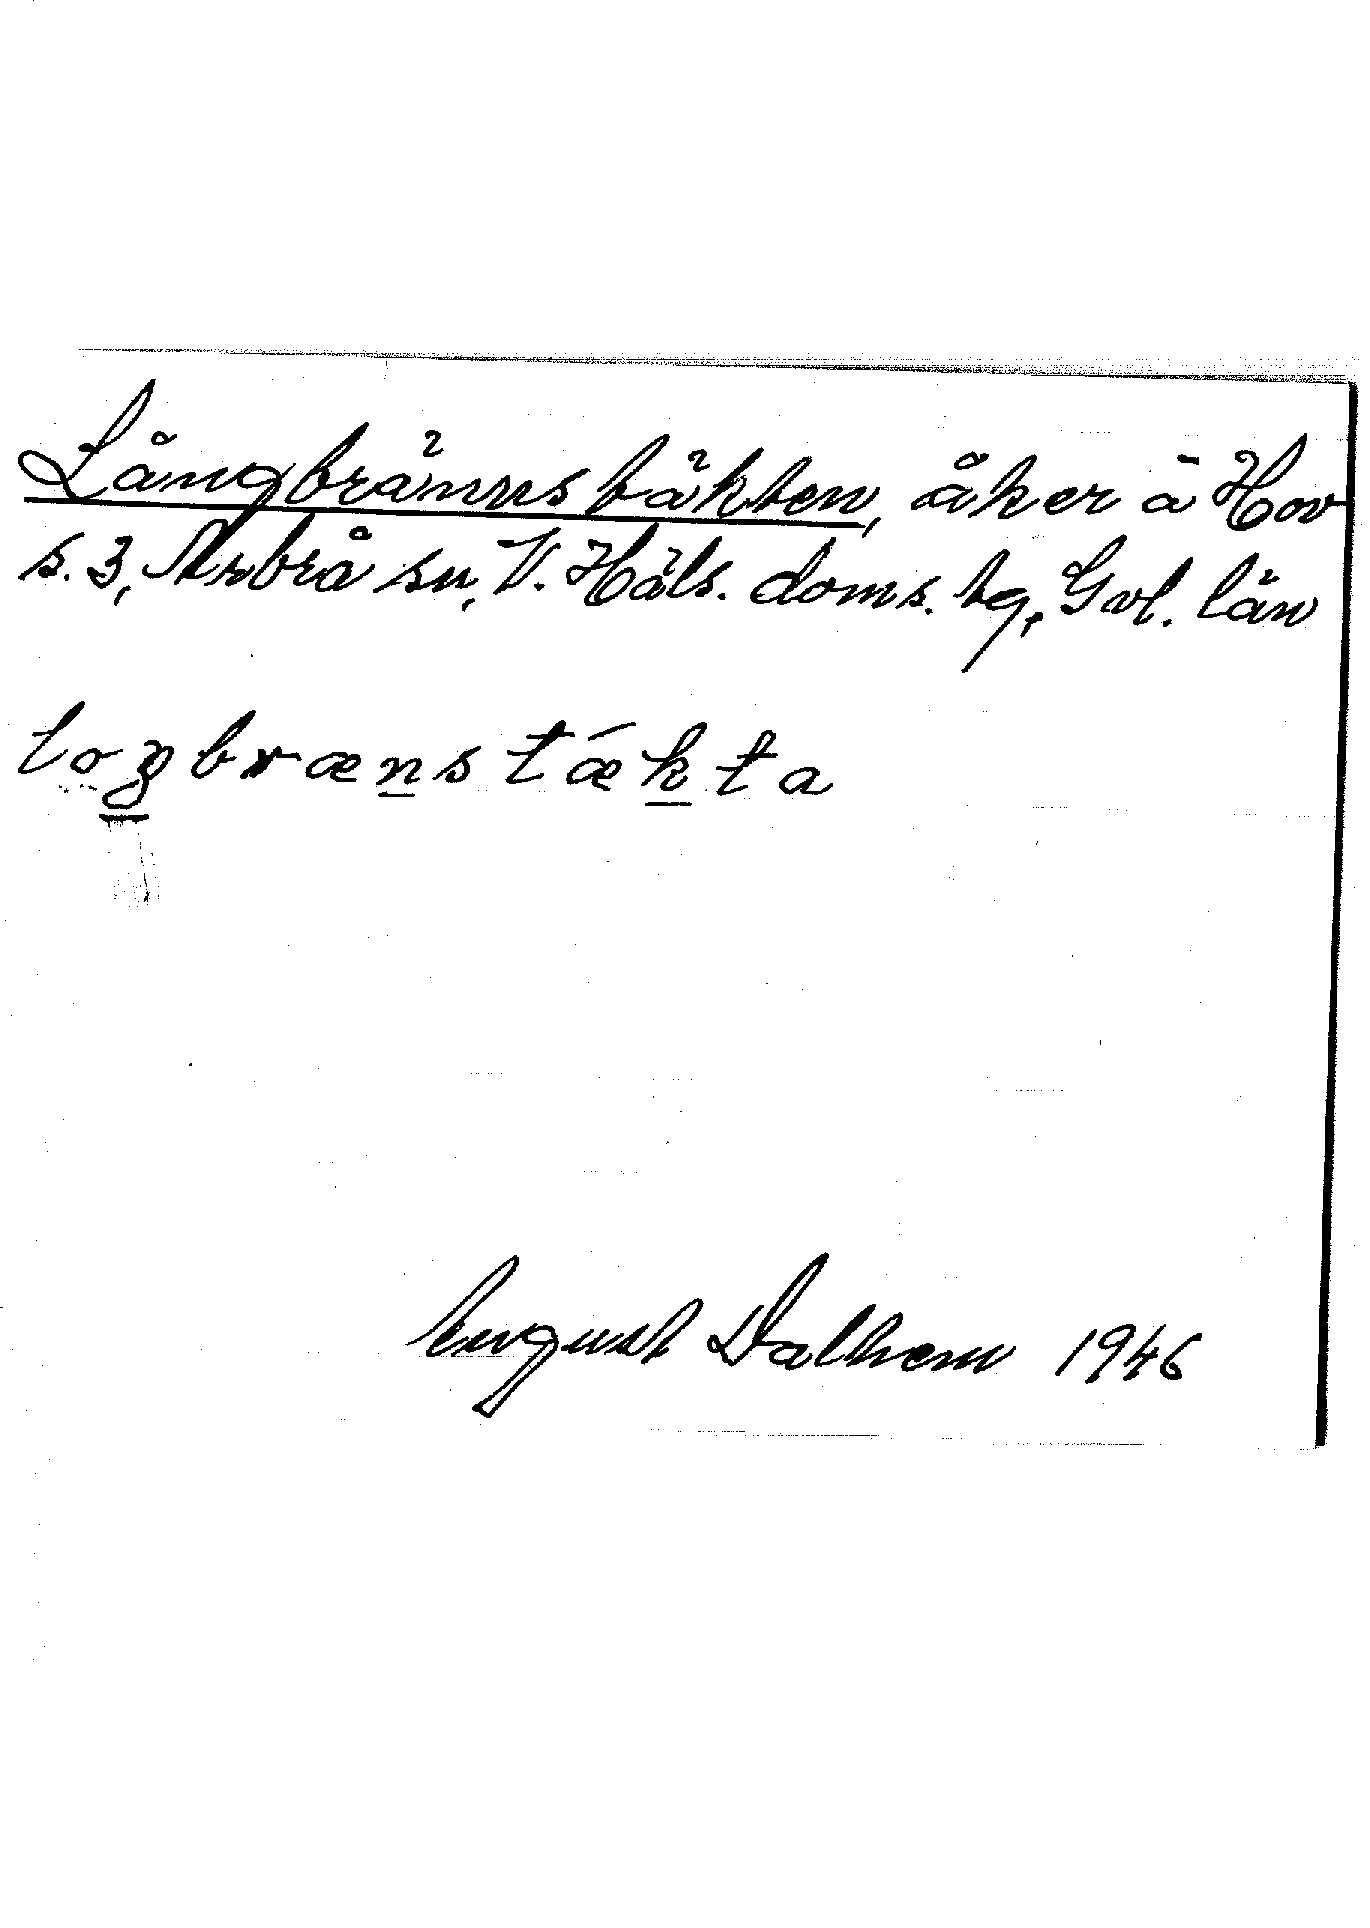 Långbrännstäkten, åker ä Hov
s. 3, Arbrå sn, V. Häls. doms. tg, Gvl. län
loŋbrænstǽkta
August Dalhem 1946